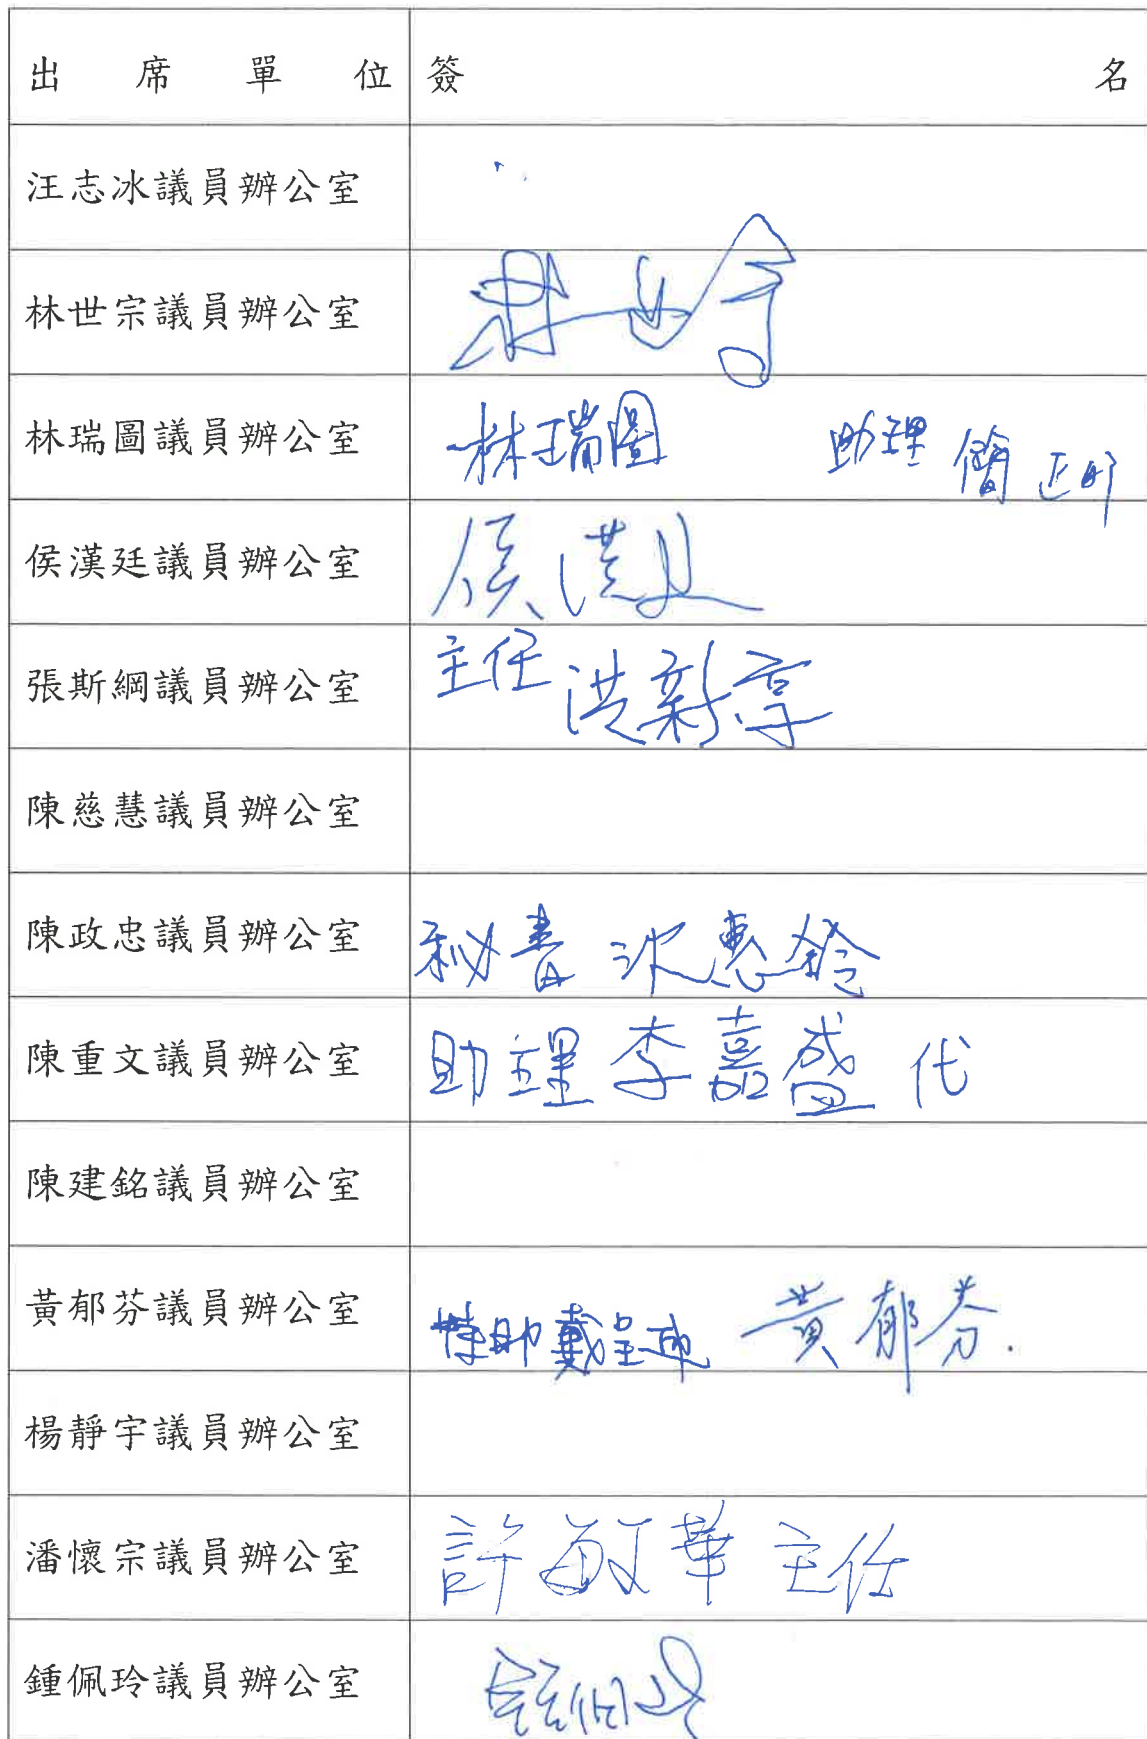 出席單位 簽名
汪志冰議員辦公室
林世宗議員辦公室
林瑞圖議員辦公室 林瑞圖 助理 簡
侯漢廷議員辦公室 侯漢廷
張斯綱議員辦公室 主任 洪新亭
陳慈慧議員辦公室
陳政忠議員辦公室 秘書 沈惠
陳重文議員辦公室 助理 李嘉盛 代
陳建銘議員辦公室
黃郁芬議員辦公室 特助 戴 黃郁芬.
楊靜宇議員辦公室
潘懷宗議員辦公室 許敏華 主任
鍾佩玲議員辦公室